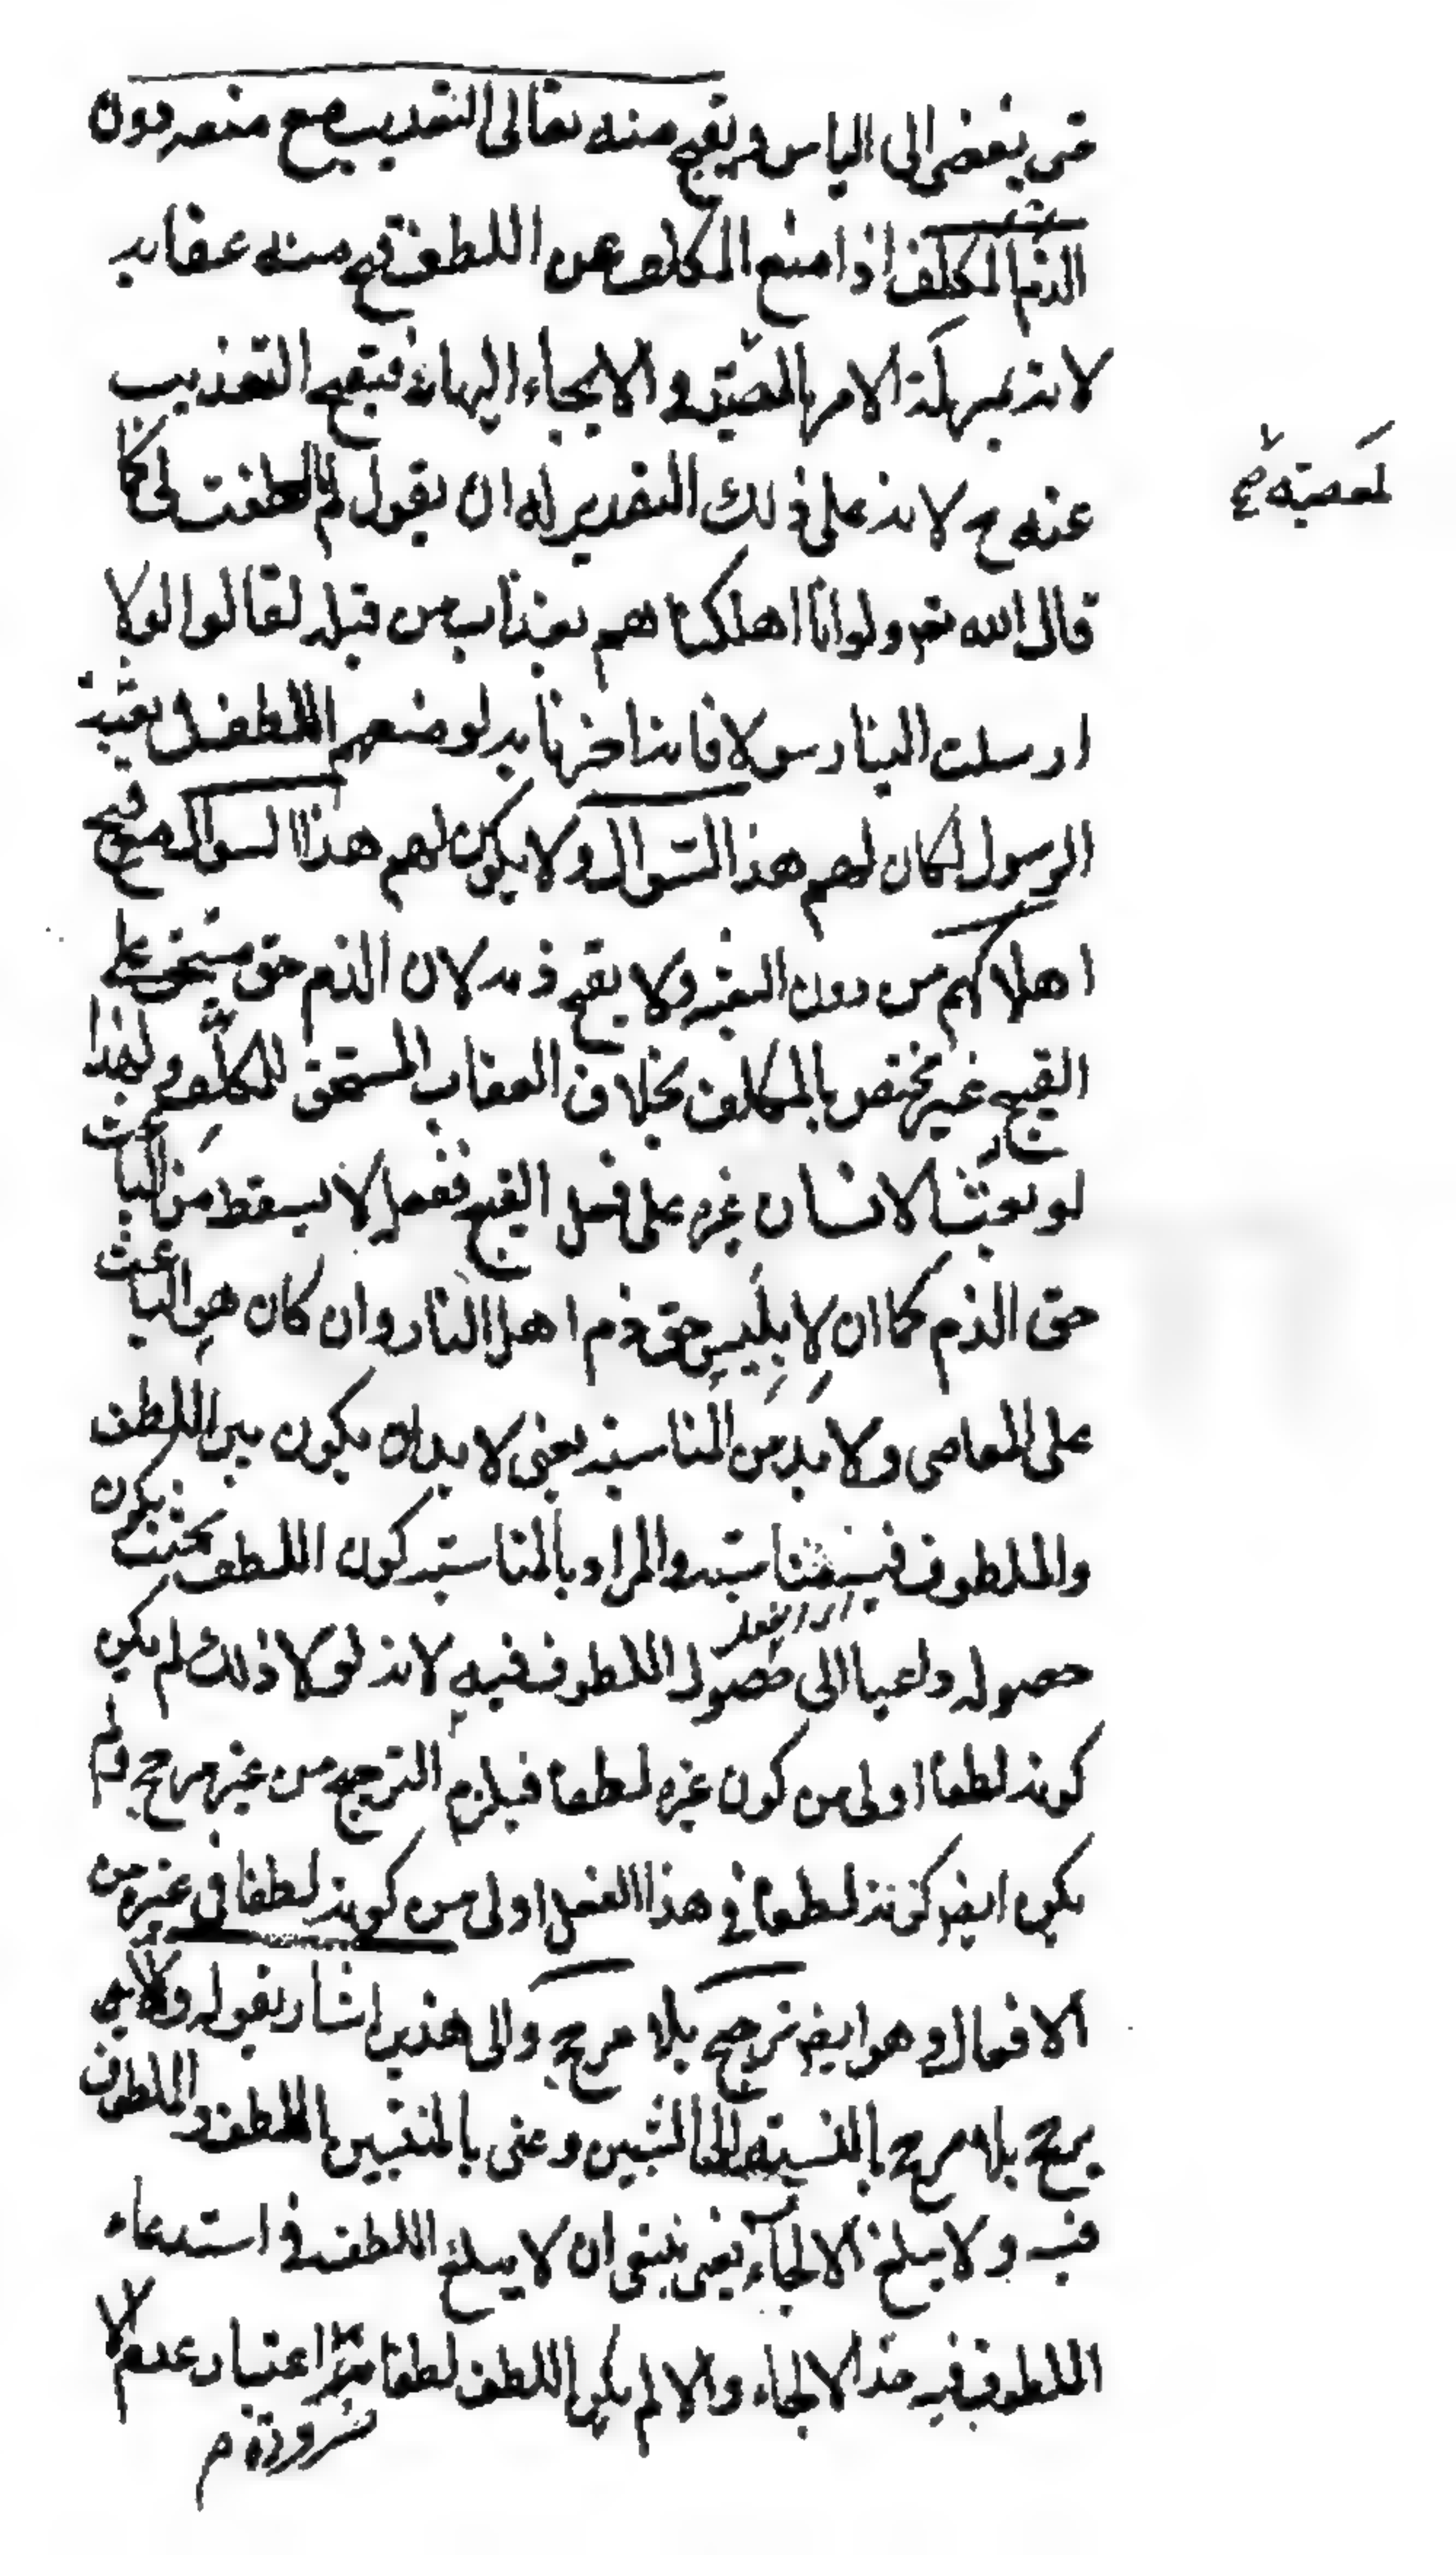 حتى يفضى الى الياس ويقبح منه تعالى التعذيب مع منعه دون
الذم المكلف اذا منع المكلف عن اللطف قبح منه عقابه
لانه بمنزلة الامر بالمعصية والالجاء اليها فيقبح التعذيب
لمعصيته صح
عنه ح لانه على ذلك التقدير له ان يقول لم ما لطفت لى كما
قال الله تعه ولو انا اهلكناهم بعذاب من قبله لقالوا لولا
ارسلت الينا رسولا فانه اخبر بانه لو منعهم اللطف فى بعثة
الرسول لكان لهم هذا السؤال ولا يكون لهم هذا السؤال مع قبح
اهلاكهم من دون البعثة ولا يقبح ذمه لان الذم حق مستحق على
القبيح غير مختص بالمكلف بخلاف العقاب المستحق للمكلف ولهذا
لو بعث الانسان غيره على فعل القبيح ففعل لا يسقط من الباعث
حق الذم كما ان لابليس حق ذم اهل النار وان كان هو الباعث
على المعاصى ولا بد من المناسبة يعنى لا بد ان يكون بين اللطف
والملطوف فيه مناسبة والمراد بالمناسبة كون اللطف بحيث يكون
حصوله داعيا الى حصول الملطوف فيه لانه لولا ذلك لم يكن
كونه لطفا اولى من كون غيره لطفا فيلزم الترجيح من غير مرجح ولم
يكن ايضه كونه لطفا فى هذا الفعل اولى من كونه لطفا فى غيره من
الافعال وهو ايضه ترجيح بلا مرجح والى هذين اشار بقوله والا
ترجح بلا مرجح بالنسبة الى المنتسبين وعنى بالمنتسبين اللطف والملطوف
فيه ولا يبلغ الالجاء يعنى ينبغى ان لا يبلغ اللطف فى استدعاء
الملطوف فيه حد الالجاء والا لم يكن اللطف لطفا اعتبار عدم الا
ضرورة م